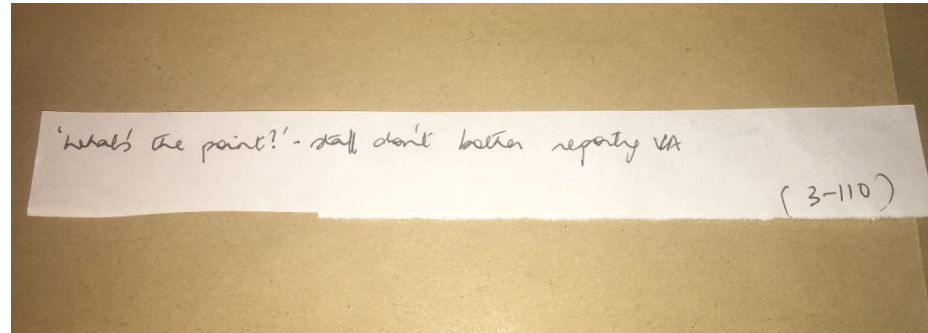 'What's the point?' - staff don't bother reporting VA
(3-110)